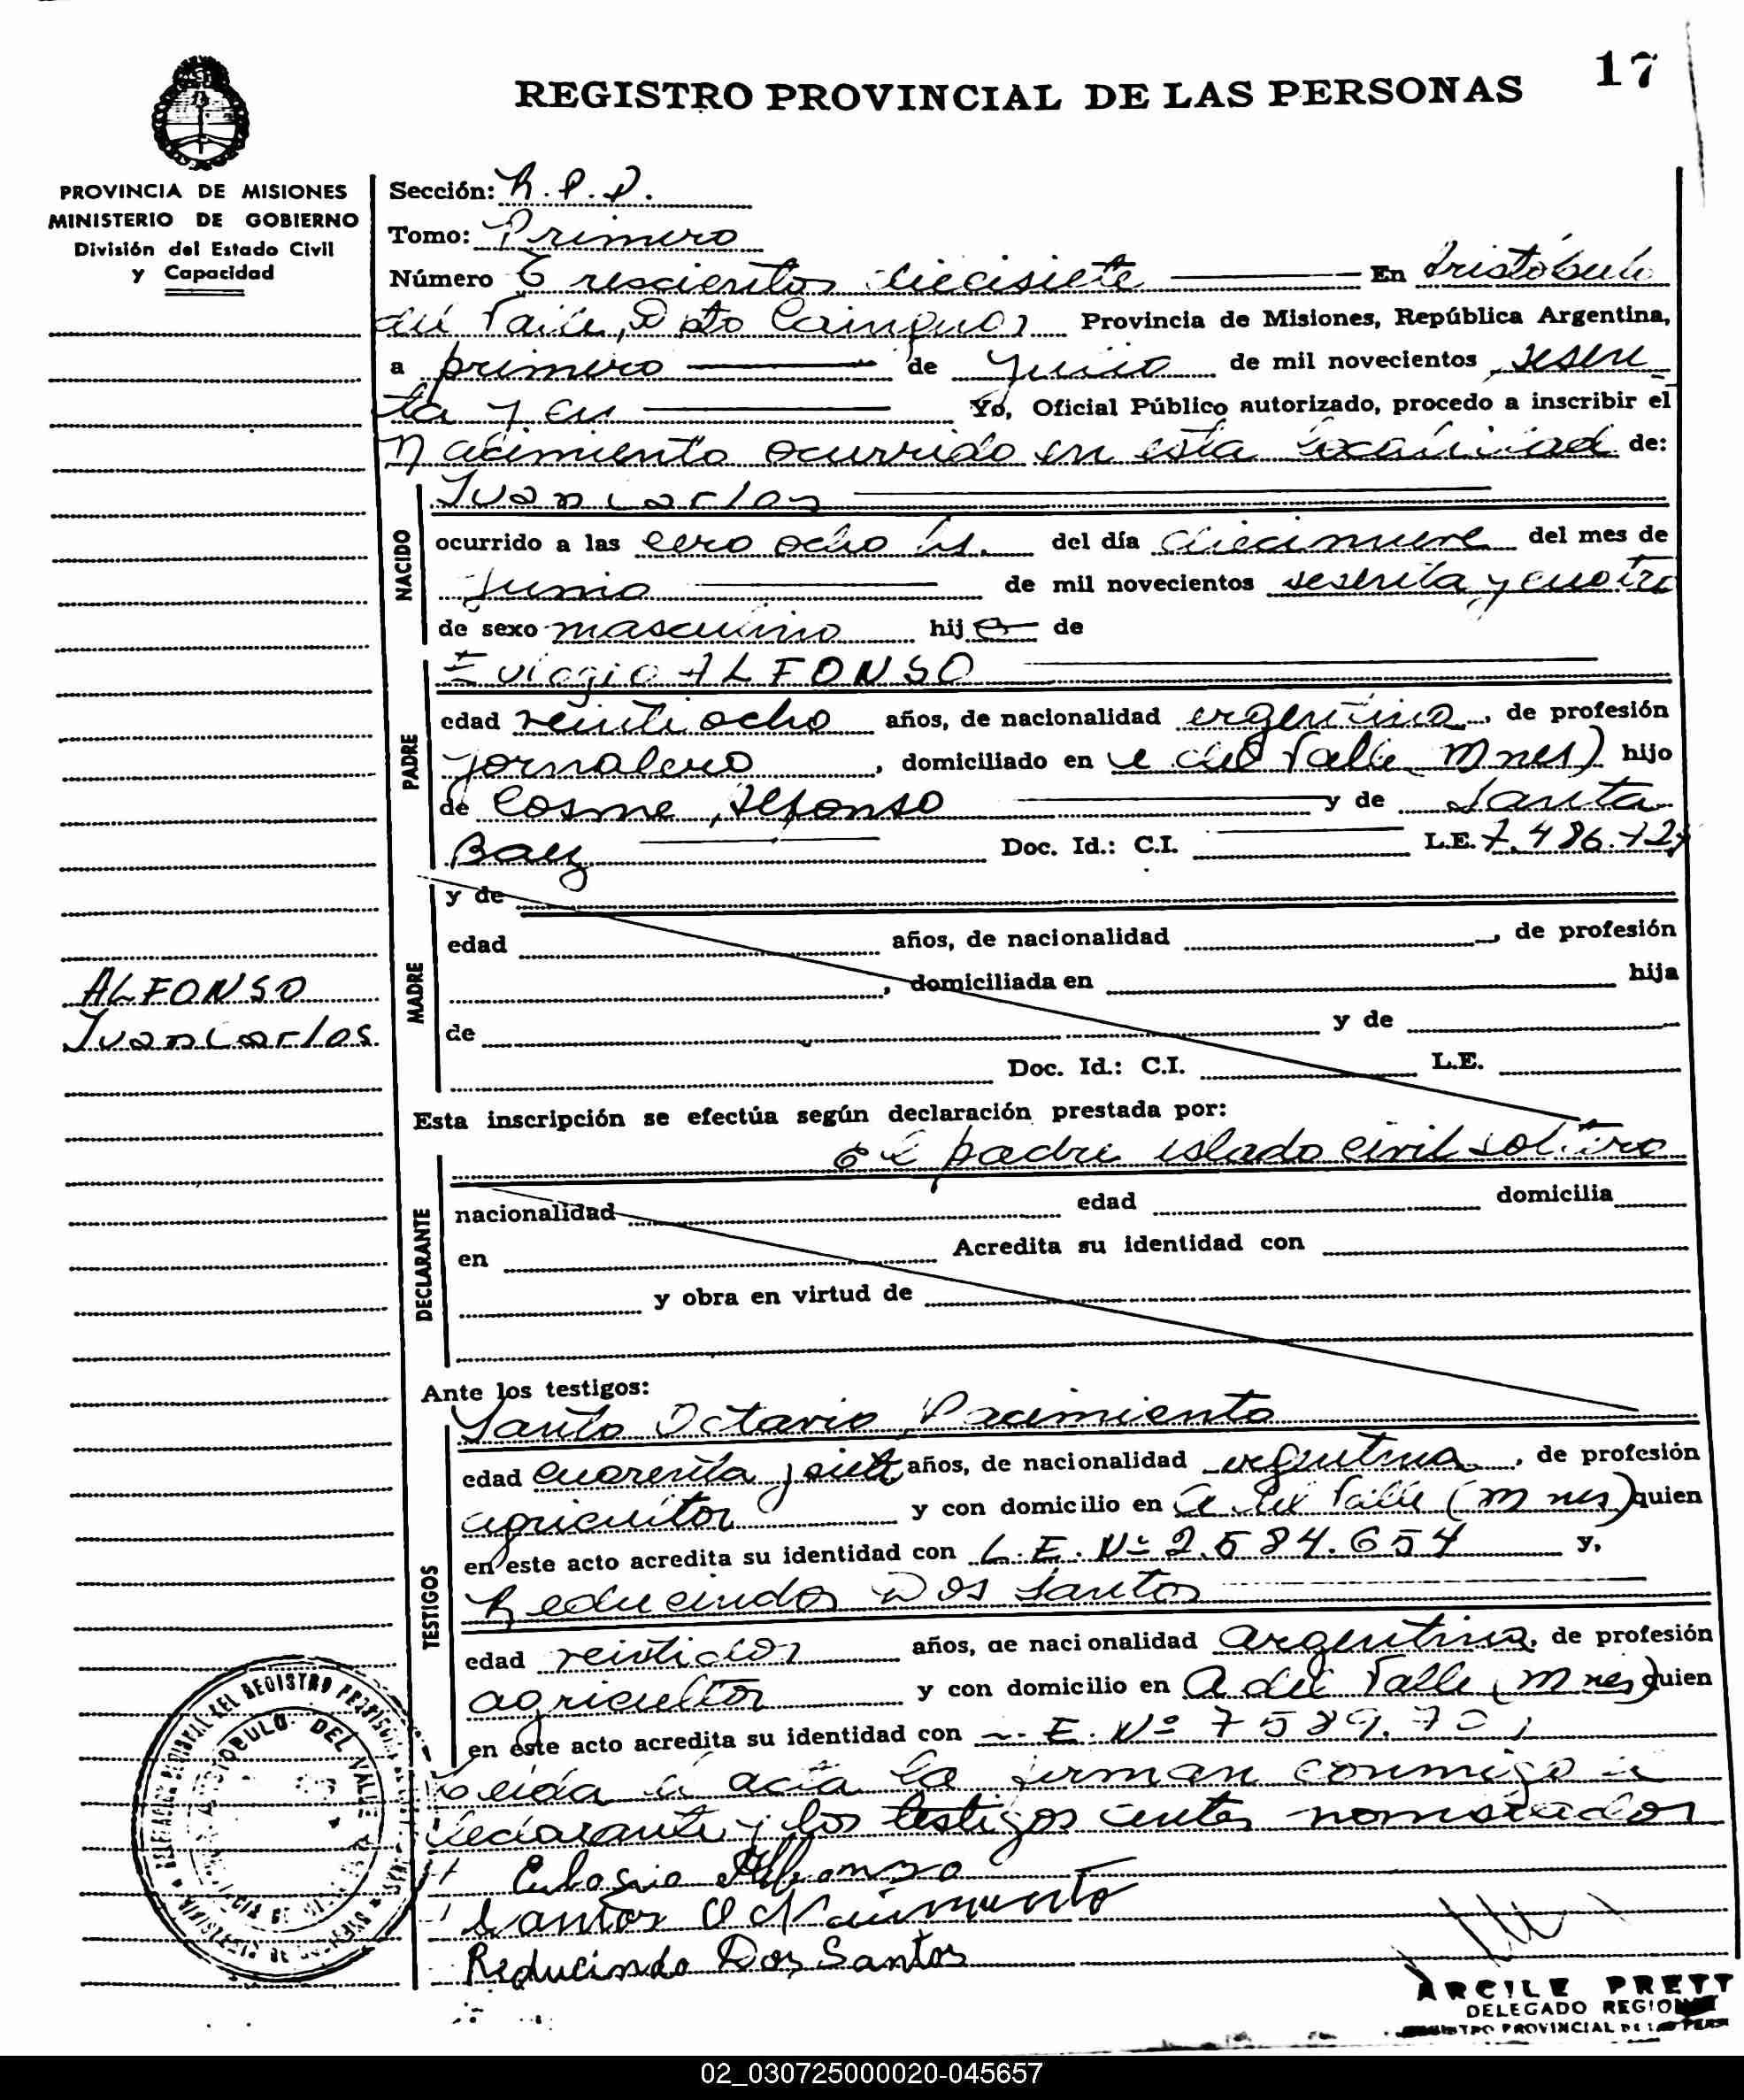 17
REGISTRO PROVINCIAL DE LAS PERSONAS
PROVINCIA DE MISIONES
MINISTERIO DE GOBIERNO
División del Estado Civil
y Capacidad
Sección: R.P.D.
Tomo: Primero
Número Trescientos diecisiete En Aristóbulo
del Valle, Dpto Cainguas Provincia de Misiones, República Argentina,
a primero de de mil novecientos sesen
ta y Yo, Oficial Público autorizado, procedo a inscribir el
Nacimiento ocurrido en esta localidad de:
NACIDO
Juan Carlos
ocurrido a las cero ocho hs. del día diecinueve del mes de
Junio de mil novecientos sesenta y cuatro
de sexo masculino hijo de
PADRE
Eulogio ALFONSO
edad veinti ocho años, de nacionalidad argentina, de profesión
jornalero, domiciliado en del Valle Mnes) hijo
de Cosme Alfonso y de Santa
Baez Doc. Id.: C.I. L.E. 7.486.127
MADRE
y de
edad años, de nacionalidad , de profesión
, domiciliada en hija
de y de
Doc. Id.: C.I. L.E.
ALFONSO
Juan Carlos
Esta inscripción se efectúa según declaración prestada por:
DECLARANTE
el padre estado civil soltero
nacionalidad edad domicilia
en Acredita su identidad con
y obra en virtud de
Ante los testigos:
TESTIGOS
Santo Octavio Nacimiento
edad cuarenta y siete años, de nacionalidad argentina, de profesión
agricultor y con domicilio en A. del Valle (Mnes) quien
en este acto acredita su identidad con L.E. Nº 2.584.654 y,
Reducindo Dos Santos
edad veintidos años, de nacionalidad argentina, de profesión
agricultor y con domicilio en A del Valle (Mnes) quien
en este acto acredita su identidad con L.E. Nº 7589.701
Leida el acta la firman conmigo el
declarante y los testigos antes nombrados
Eulogio Alfonzo
Santos O Nacimiento
Reducindo Dos Santos
ARCILE PRETT
DELEGADO REGIONAL
PROVINCIAL DE LAS PERS
02_030725000020-045657